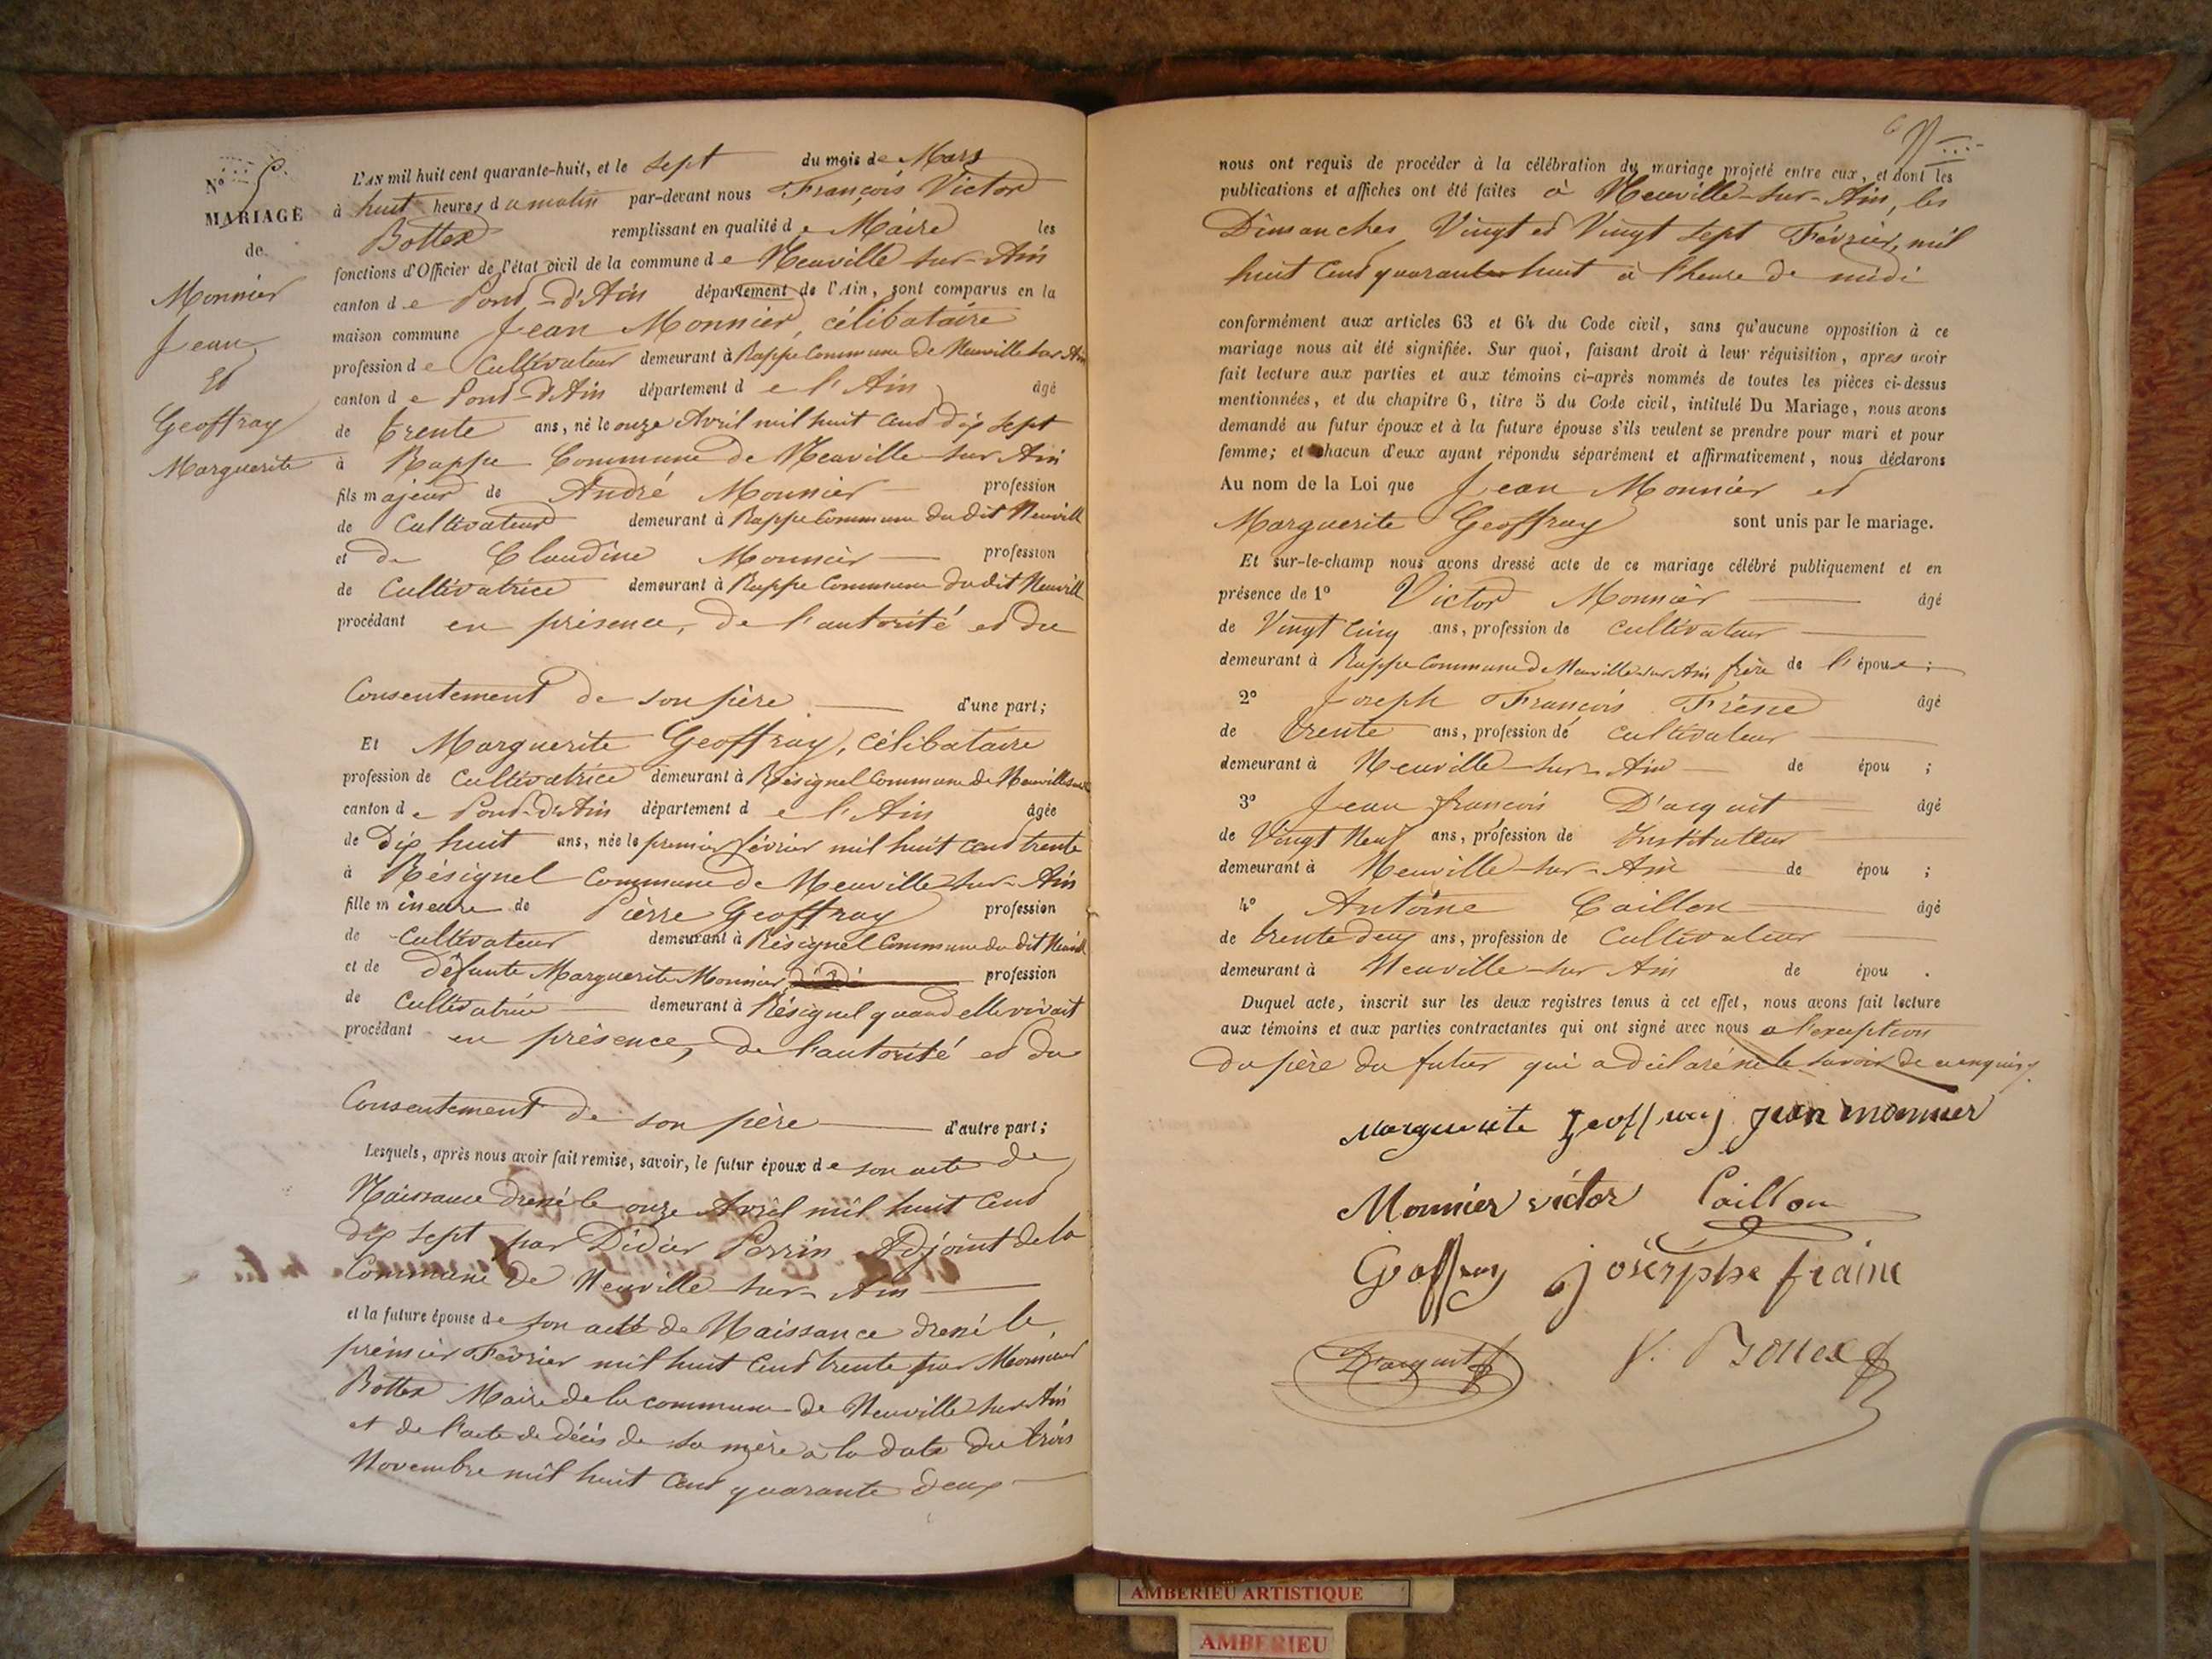 N° 5.
MARIAGE
de
Monnier
Jean
Et
Geoffray
Marguerite
L'AN mil huit cent quarante-huit, et le sept du mois de Mars
à huit heures du matin par-devant nous François Victor
Bottex remplissant en qualité de Maire les
fonctions d'Officier de l'état civil de la commune de Neuville sur-Ain
canton de Pont-d'Ain département de l'Ain, sont comparus en la
maison commune Jean Monnier, célibataire
profession de Cultivateur demeurant à Rappe Commune de Neuville sur Ain
canton de Pont-d'Ain département de l'Ain âgé
de trente ans, né le onze Avril mil huit cent dix sept
à Rappe Commune de Neuville-sur Ain
fils majeur de André Monnier profession
de Cultivateur demeurant à Rappe Commune du dit Neuville
et de Claudine Monnier profession
de Cultivatrice demeurant à Rappe Commune du dit Neuville
procédant en présence, de l'autorité et du
Consentement de son père d'une part;
Et Marguerite Geoffray, célibataire
profession de Cultivatrice demeurant à Résignel Commune de Neuville sur Ain
canton de Pont-d'Ain département de l'Ain âgée
de dix huit ans, née le premier février mil huit cent trente
à Résignel Commune de Neuville-sur-Ain
fille mineure de Pièrre Geoffray profession
de Cultivateur demeurant à Résignel Commune du dit Neuville
et de défunte Marguerite Monnier profession
de Cultivatrice demeurant à Résignel quand elle vivait
procédant en présence, de l'autorité et du
Consentement de son père d'autre part;
Lesquels, après nous avoir fait remise, savoir, le futur époux de son acte de
Naissance dressé le onze Avril mil huit cent
dix sept par Didier Perrin Adjoint de la
Commune de Neuville-sur-Ain
et la future épouse de son acte de Naissance dressé le
prémier Février mil huit cent trente par Monsieur
Bottex Maire de la commune de Neuville sur Ain
et de l'acte de décès de sa mère à la date du trois
Novembre mil huit cent quarante deux
nous ont requis de procéder à la célébration du mariage projeté entre eux, et dont les
publications et affiches ont été faites à Neuville-sur-Ain, les
Dimanches Vingt et Vingt sept Février, mil
huit cent quarante huit à l'heure de midi
conformément aux articles 63 et 64 du Code civil, sans qu'aucune opposition à ce
mariage nous ait été signifiée. Sur quoi, faisant droit à leur réquisition, apres avoir
fait lecture aux parties et aux témoins ci-après nommés de toutes les pièces ci-dessus
mentionnées, et du chapitre 6, titre 5 du Code civil, intitulé Du Mariage, nous avons
demandé au futur époux et à la future épouse s'ils veulent se prendre pour mari et pour
femme; et chacun d'eux ayant répondu séparément et affirmativement, nous déclarons
Au nom de la Loi que Jean Monnier et
Marguerite Geoffray sont unis par le mariage.
Et sur-le-champ nous avons dressé acte de ce mariage célébré publiquement et en
présence de 1° Victor Monnier âgé
de Vingt Cinq ans, profession de Cultivateur
demeurant à Rappe Commune de Neuville sur Ain frère de l'époux;
2° Joseph François Frène âgé
de trente ans, profession de cultivateur
demeurant à Neuville-sur-Ain de épou ;
3° Jean françois D'acquit âgé
de Vingt Neuf ans, profession de Instituteur
demeurant à Neuville-sur-Ain de épou ;
4° Antoine Caillon âgé
de trente deux ans, profession de Cultivateur
demeurant à Neuville-sur Ain de épou .
Duquel acte, inscrit sur les deux registres tenus à cet effet, nous avons fait lecture
aux témoins et aux parties contractantes qui ont signé avec nous a l'exception
du père du futur qui a déclaré ne le savoir de ce enquis
Marguerite geoffray jean monnier
Monnier victor Caillon
Geoffray josérphe fraine
D'acquit V. Bottex
AMBERIEU ARTISTIQUE
AMBERIEU